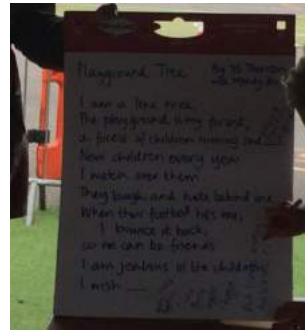 Playground Tree
By Y5
I am a lone tree.
The playground is my forest,
a forest of children running and
New children every year
I watch over them
They laugh and hide behind me
When their football hits me,
I bounce it back,
so we can be friends
I am jealous of the children,
I wish